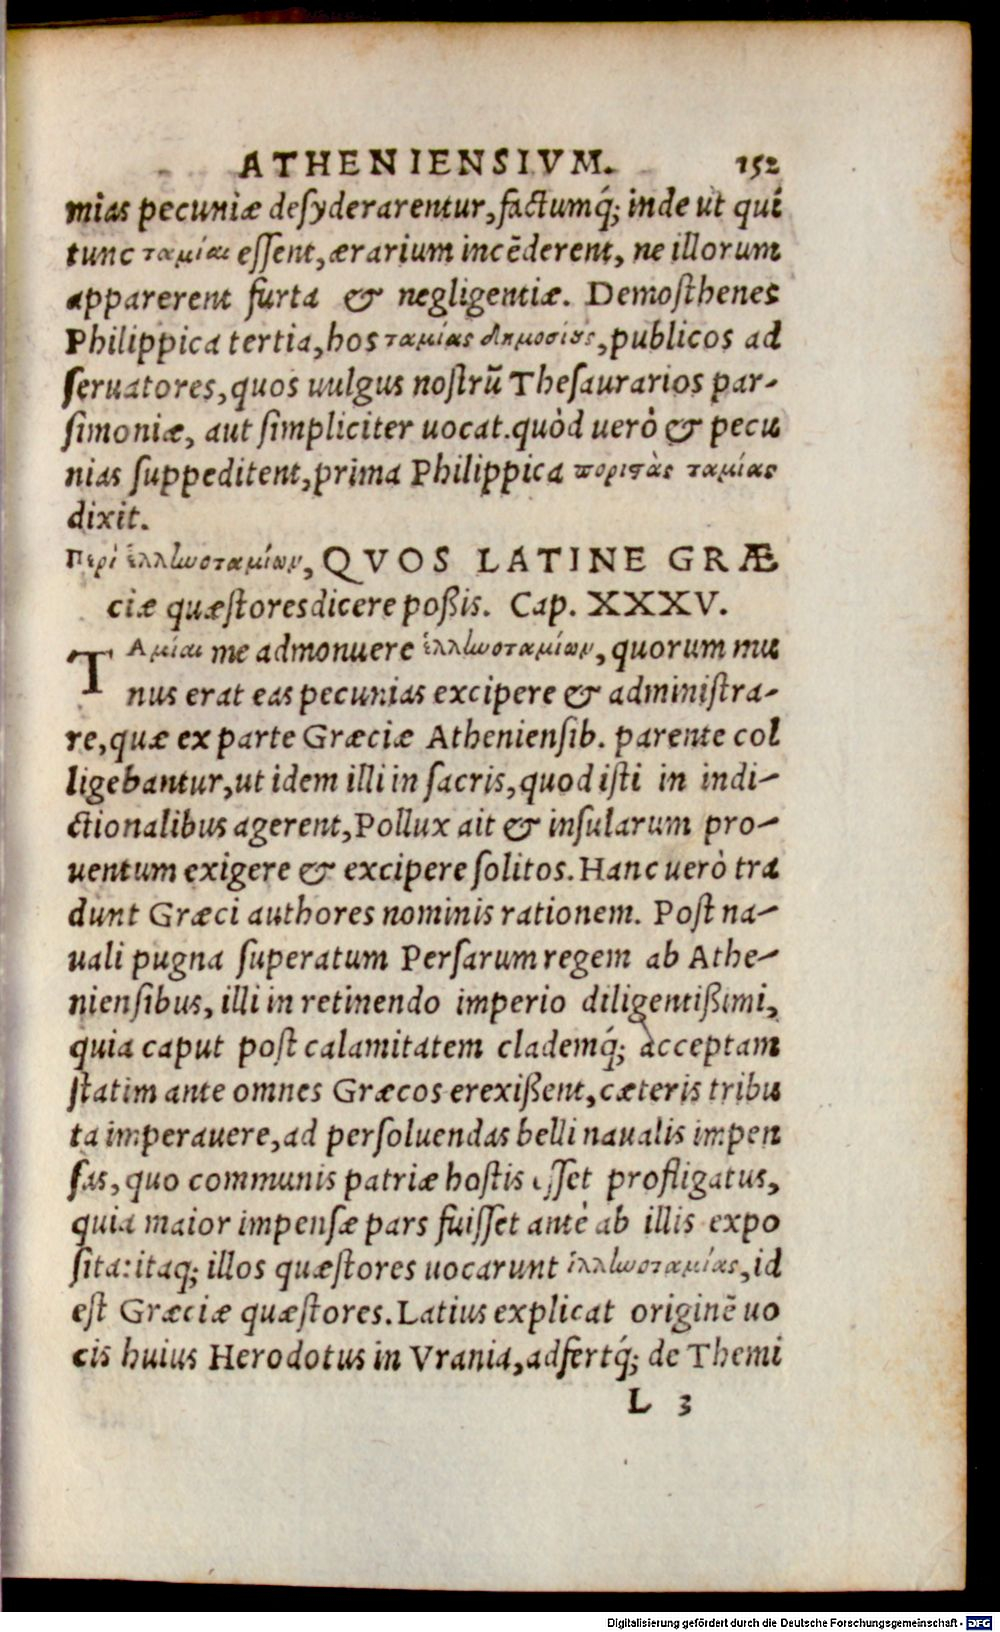 ATHENIENSIVM. 152
mias pecuniæ desyderarentur, factumq́; inde ut qui
tunc ταμίαι essent, ærarium incēderent, ne illorum
apparerent furta & negligentiæ. Demosthenes
Philippica tertia, hos ταμίας δημοσίȣς, publicos ad
seruatores, quos uulgus nostrū Thesaurarios par-
simoniæ, aut simpliciter uocat. quòd uerò & pecu
nias suppeditent, prima Philippica ποριςὰς ταμίας
dixit.
Περὶ ἑλληνοταμίων, QVOS LATINE GRÆ
ciæ quæstores dicere poßis. Cap. XXXV.
TAμίαι me admonuere ἑλληνοταμίων, quorum mu
nus erat eas pecunias excipere & administra-
re, quæ ex parte Græciæ Atheniensib. parente col
ligebantur, ut idem illi in sacris, quod isti in indi-
ctionalibus agerent, Pollux ait & insularum pro-
uentum exigere & excipere solitos. Hanc uerò tra
dunt Græci authores nominis rationem. Post na-
uali pugna superatum Persarum regem ab Athe-
niensibus, illi in retinendo imperio diligentißimi,
quia caput post calamitatem clademq́; acceptam
statim ante omnes Græcos erexißent, cæteris tribu
ta imperauere, ad persoluendas belli naualis impen
sas, quo communis patriæ hostis esset profligatus,
quia maior impensæ pars fuisset antè ab illis expo
sita: itaq; illos quæstores uocarunt ἑλληνοταμίας, id
est Græciæ quæstores. Latius explicat originē uo
cis huius Herodotus in Vrania, adfertq́; de Themi
L 3
Digitalisierung gefördert durch die Deutsche Forschungsgemeinschaft - DFG